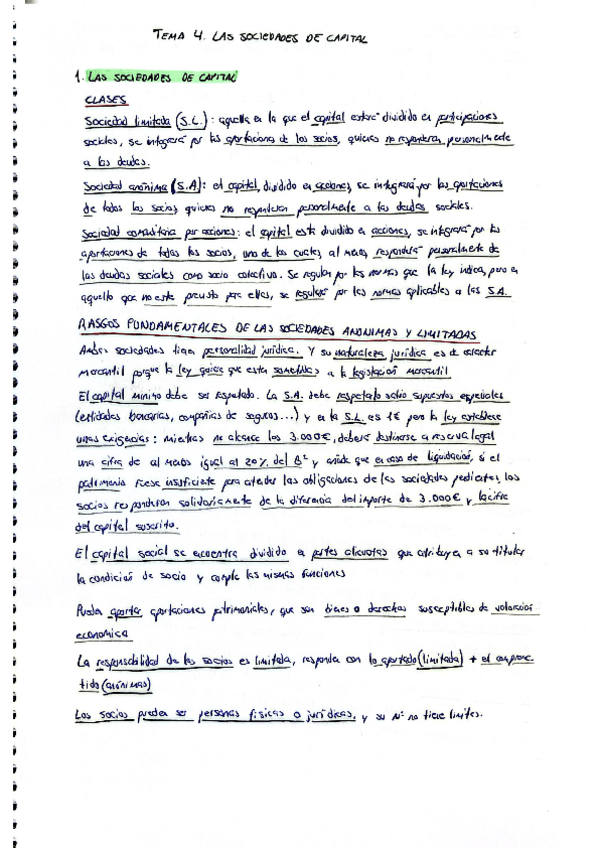 TEMA 4. LAS SOCIEDADES DE CAPITAL
1. LAS SOCIEDADES DE CAPITAL
CLASES
Sociedad limitada (S.L.): aquella en la que el capital estará dividido en participaciones
sociales, se integrará por las aportaciones de los socios, quienes no responderán personalmente
a las deudas.
Sociedad anónima (S.A): el capital, dividido en acciones, se integrará por las aportaciones
de todos los socios, quienes no responderán personalmente a las deudas sociales.
Sociedad comanditaria por acciones: el capital está dividido en acciones, se integrará por las
aportaciones de todos los socios, uno de los cuales, al menos, responderá personalmente de
las deudas sociales como socio colectivo. Se regulan por las normas que la ley indica, pero en
aquello que no este previsto por ellas, se regulará por las normas aplicables a las S.A.
RASGOS FUNDAMENTALES DE LAS SOCIEDADES ANONIMAS Y LIMITADAS
Ambas sociedades tienen personalidad jurídica. Y su naturaleza jurídica es de carácter
mercantil porque la ley quiere que esten sometidas a la legislación mercantil
El capital mínimo debe ser respetado. La S.A. debe respetarlo salvo supuestos especiales
(entidades bancarias, compañías de seguros...) y en la S.L. es 1€ pero la ley establece
unas exigencias: mientras no alcance los 3.000€, deberá destinarse a reserva legal
una cifra de al menos igual al 20% del Bº y añade que en caso de liquidación, si el
patrimonio fuese insuficiente para atender las obligaciones de las sociedades pedientes, los
socios responderán solidariamente de la diferencia del importe de 3.000€ y la cifra
del capital suscrito.
El capital social se encuentra dividido en partes alicuotas que atribuyen a su titular
la condición de socio y cumple las mismas funciones
Pueden aportar aportaciones patrimoniales, que son bienes o derechos susceptibles de valoración
economica
La responsabilidad de los socios es limitada, responden con lo aportado (limitada) + el comprome
tido (anónimas)
Los socios pueden ser personas físicas o jurídicas, y su Nº no tiene límites.